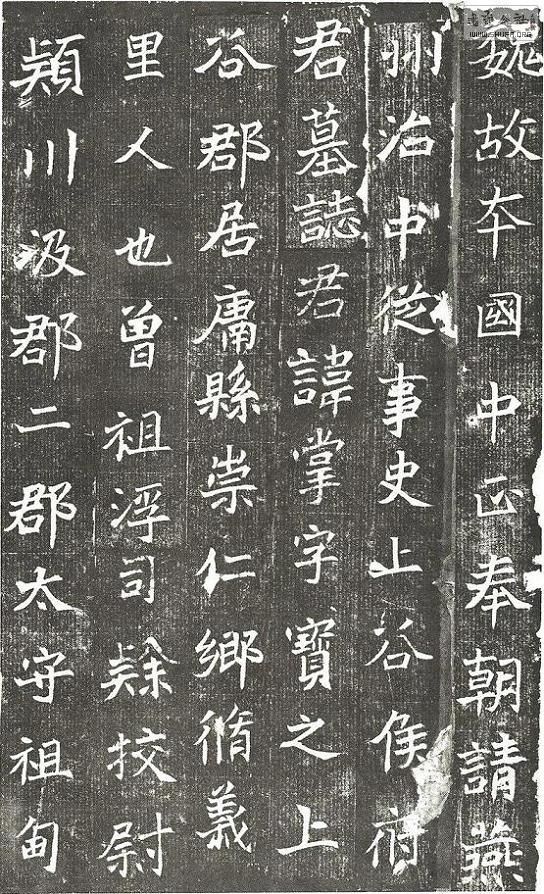 魏故夲國中正奉朝請燕
州治中從事史上谷侯府
君墓誌君諱掌字寶之上
谷郡居庸縣崇仁鄉脩義
里人也曾祖浮司隸挍尉
頴川汲郡二郡太守祖甸
WWW.SHUFA.ORG